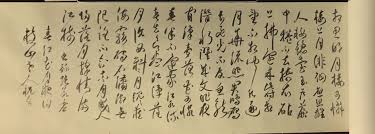 思明月樓可憐
樓上月徘徊應照離
人妝鏡臺玉戶簾
中捲不去搗衣砧
上拂還來此時相
望不相聞願逐
月華流照君鴻雁
長飛光不度魚龍
潛躍水成文昨夜
閒潭夢落花可憐
春半不還家江水流
春去欲盡江潭落
月復西斜斜月沉沉藏
海霧碣石瀟湘無
限路不知乘月幾人
歸落月搖情滿
江樹
春江花月夜
枝山